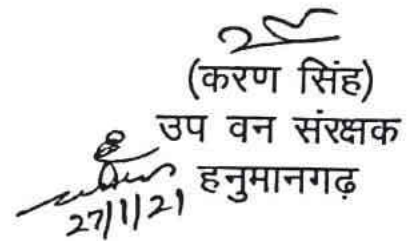 (करण सिंह)
उप वन संरक्षक
हनुमानगढ़
27/1/21